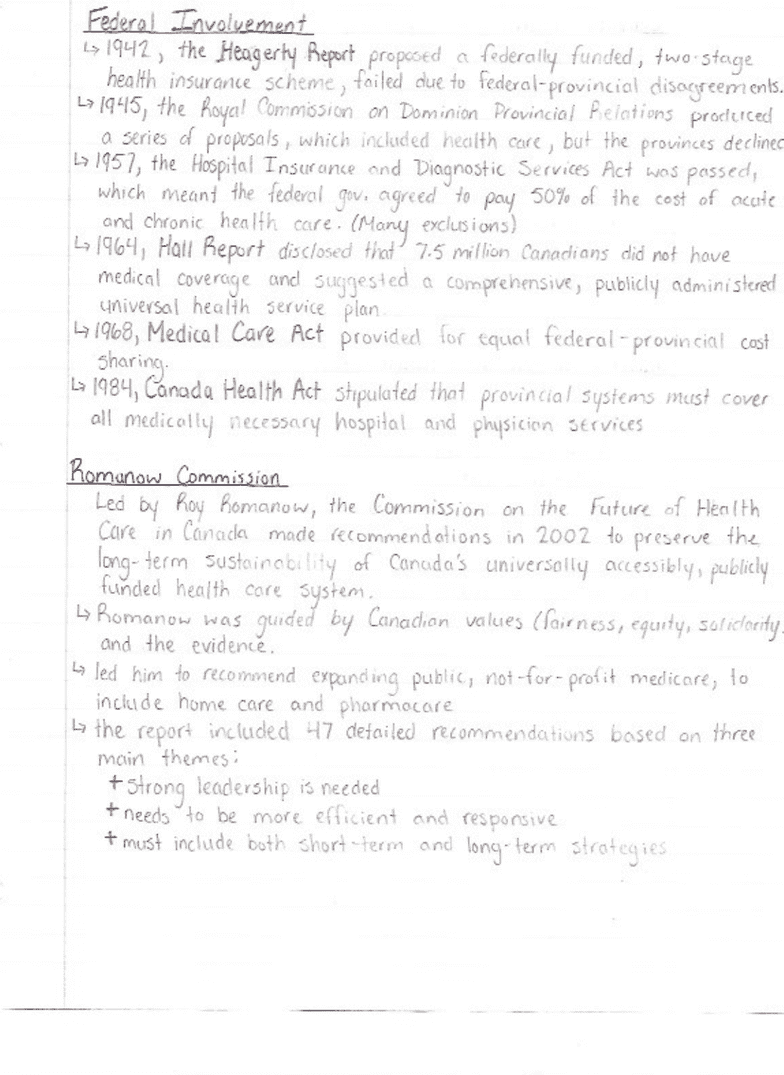 Federal Involvement
↳ 1942, the Heagerty Report proposed a federally funded, two-stage
health insurance scheme, failed due to federal-provincial disagreements.
↳ 1945, the Royal Commission on Dominion Provincial Relations produced
a series of proposals, which included health care, but the provinces declined
↳ 1957, the Hospital Insurance and Diagnostic Services Act was passed,
which meant the federal gov. agreed to pay 50% of the cost of acute
and chronic health care. (Many exclusions)
↳ 1964, Hall Report disclosed that 7.5 million Canadians did not have
medical coverage and suggested a comprehensive, publicly administered
universal health service plan.
↳ 1968, Medical Care Act provided for equal federal-provincial cost
sharing.
↳ 1984, Canada Health Act stipulated that provincial systems must cover
all medically necessary hospital and physician services
Romanow Commission
Led by Roy Romanow, the Commission on the Future of Health
Care in Canada made recommendations in 2002 to preserve the
long-term sustainability of Canada's universally accessibly, publicly
funded health care system.
↳ Romanow was guided by Canadian values (fairness, equity, solidarity)
and the evidence.
↳ led him to recommend expanding public, not-for-profit medicare, to
include home care and pharmacare
↳ the report included 47 detailed recommendations based on three
main themes:
+ Strong leadership is needed
+ needs to be more efficient and responsive
+ must include both short-term and long-term strategies